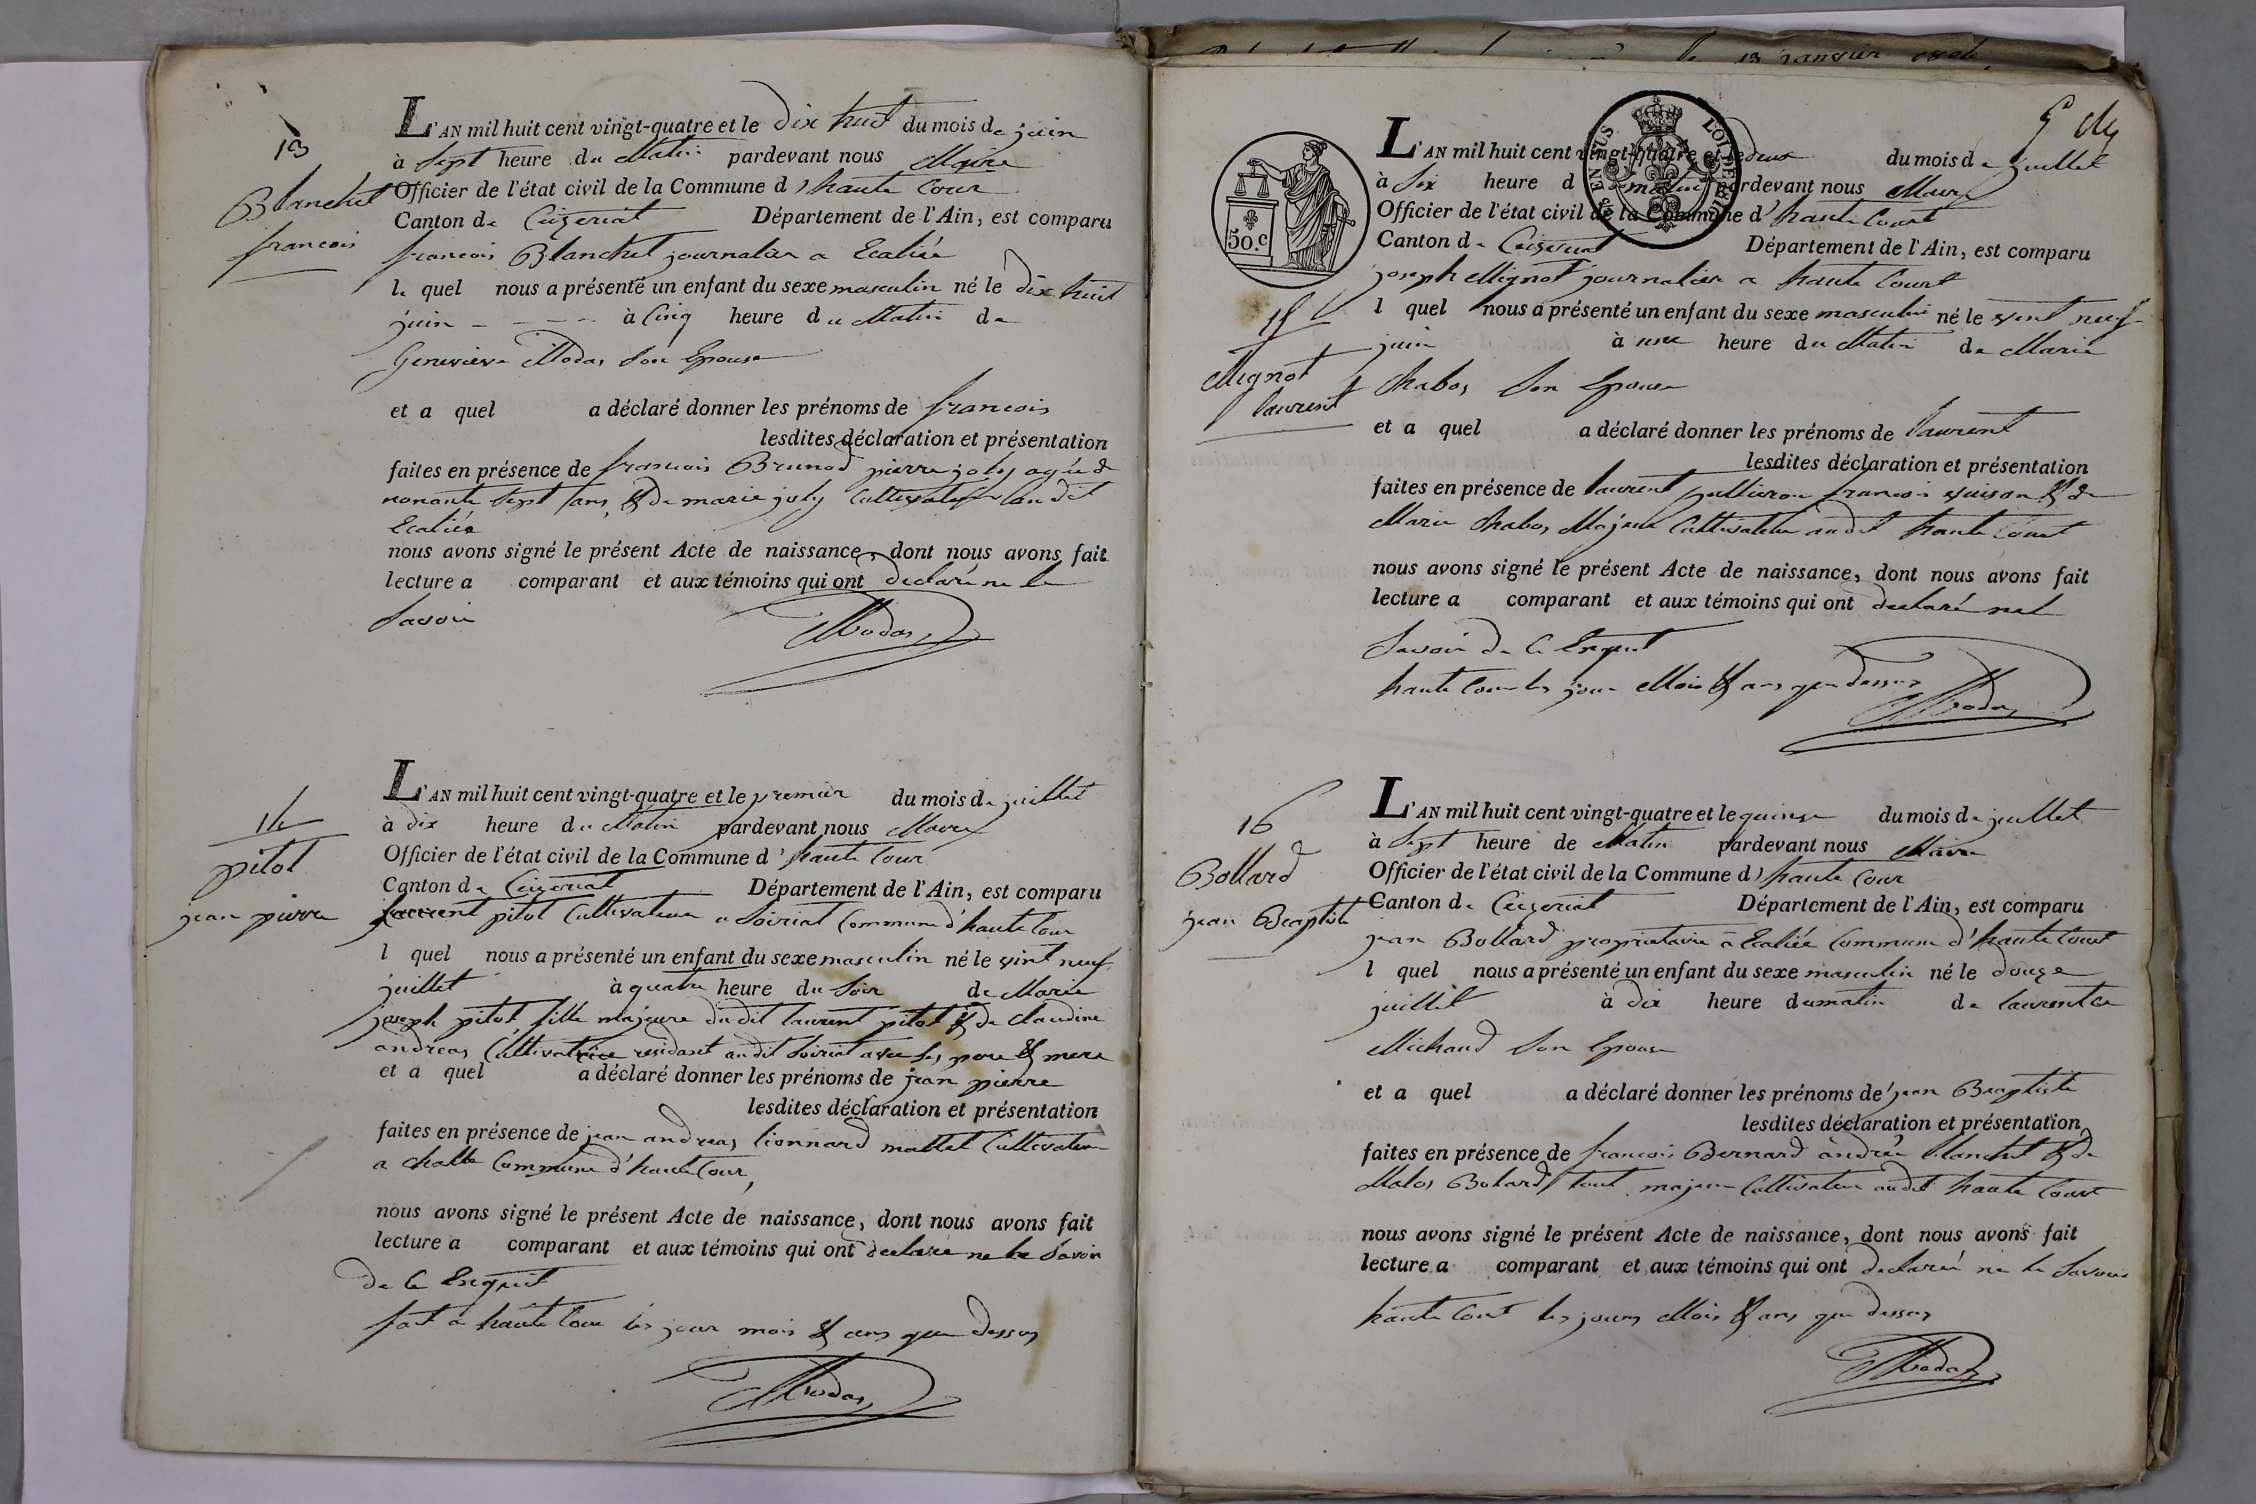 13
Blanchet
francois
L'AN mil huit cent vingt-quatre et le dix huit du mois de juin
à Sept heure du Matin pardevant nous Maire
Officier de l'état civil de la Commune d'haute Cour
Canton de Ceizeriat Département de l'Ain, est comparu
francois Blanchet journalier a
le quel nous a présenté un enfant du sexe masculin né le dix huit
juin à Cinq heure du Matin de
Genevieve Rodas Son Epouse
et a quel a déclaré donner les prénoms de francois
lesdites déclaration et présentation
faites en présence de francois Brunod pierre joly agée de
nonante Sept ans & de marie joly Cultivateur au dit
nous avons signé le présent Acte de naissance, dont nous avons fait
lecture a comparant et aux témoins qui ont declaré ne le
Savoir
Rodas
14
pitot
jean pierre
L'AN mil huit cent vingt-quatre et le premier du mois de juillet
à dix heure du Matin pardevant nous Maire
Officier de l'état civil de la Commune d'haute Cour
Canton de Ceizeriat Département de l'Ain, est comparu
laurent pitot Cultivateur a Soiriat Commune d'haute Cour
l quel nous a présenté un enfant du sexe masculin né le vint neuf
juillet à quatre heure du Soir de Marie
joseph pitot fille majeure dudit laurent pitot & de claudine
andreas Cultivatrice residant audit Soiriat avec Ses pere & mere
et a quel a déclaré donner les prénoms de jean pierre
lesdites déclaration et présentation
faites en présence de jean andreas lionnard mattet Cultivateur
a Commune d'haute Cour,
nous avons signé le présent Acte de naissance, dont nous avons fait
lecture a comparant et aux témoins qui ont declaré ne le Savoir
de Ce Enquit
fait a haute Cour les jour mois & ans que dessus
Rodas
50.c
LOI DE 1816
EN SUS
15
Mignot
laurent
L'AN mil huit cent vingt-quatre et le deux du mois de juillet
à Six heure d matin pardevant nous Maire
Officier de l'état civil de la Commune d'haute Court
Canton de Ceizeriat Département de l'Ain, est comparu
joseph Mignot journalier a haute Court
l quel nous a présenté un enfant du sexe masculin né le vint neuf
juin à une heure du Matin de Marie
Chabos Son Epouse
et a quel a déclaré donner les prénoms de laurent
lesdites déclaration et présentation
faites en présence de laurent francois & de
Marie Chabos Majeur Cultivateur audit haute Court
nous avons signé le présent Acte de naissance, dont nous avons fait
lecture a comparant et aux témoins qui ont declaré ne le
Savoir de Ce Enquit
haute Cour les jour Mois & ans que dessus
Rodas
16
Bollard
jean Baptiste
L'AN mil huit cent vingt-quatre et le quinze du mois de juillet
à Sept heure de Matin pardevant nous Maire
Officier de l'état civil de la Commune d'haute Cour
Canton de Ceizeriat Département de l'Ain, est comparu
jean Bollard proprietaire a Commune d'haute Court
l quel nous a présenté un enfant du sexe masculin né le douze
juillet à dix heure du matin de laurentce
Michaud Son Epouse
et a quel a déclaré donner les prénoms de jean Baptiste
lesdites déclaration et présentation
faites en présence de francois Bernard andrée blanchet & de
Bolard tout majeur Cultivateur audit haute Court
nous avons signé le présent Acte de naissance, dont nous avons fait
lecture a comparant et aux témoins qui ont declaré ne le Savoir
haute Court les jours Mois & ans que dessus
Rodas